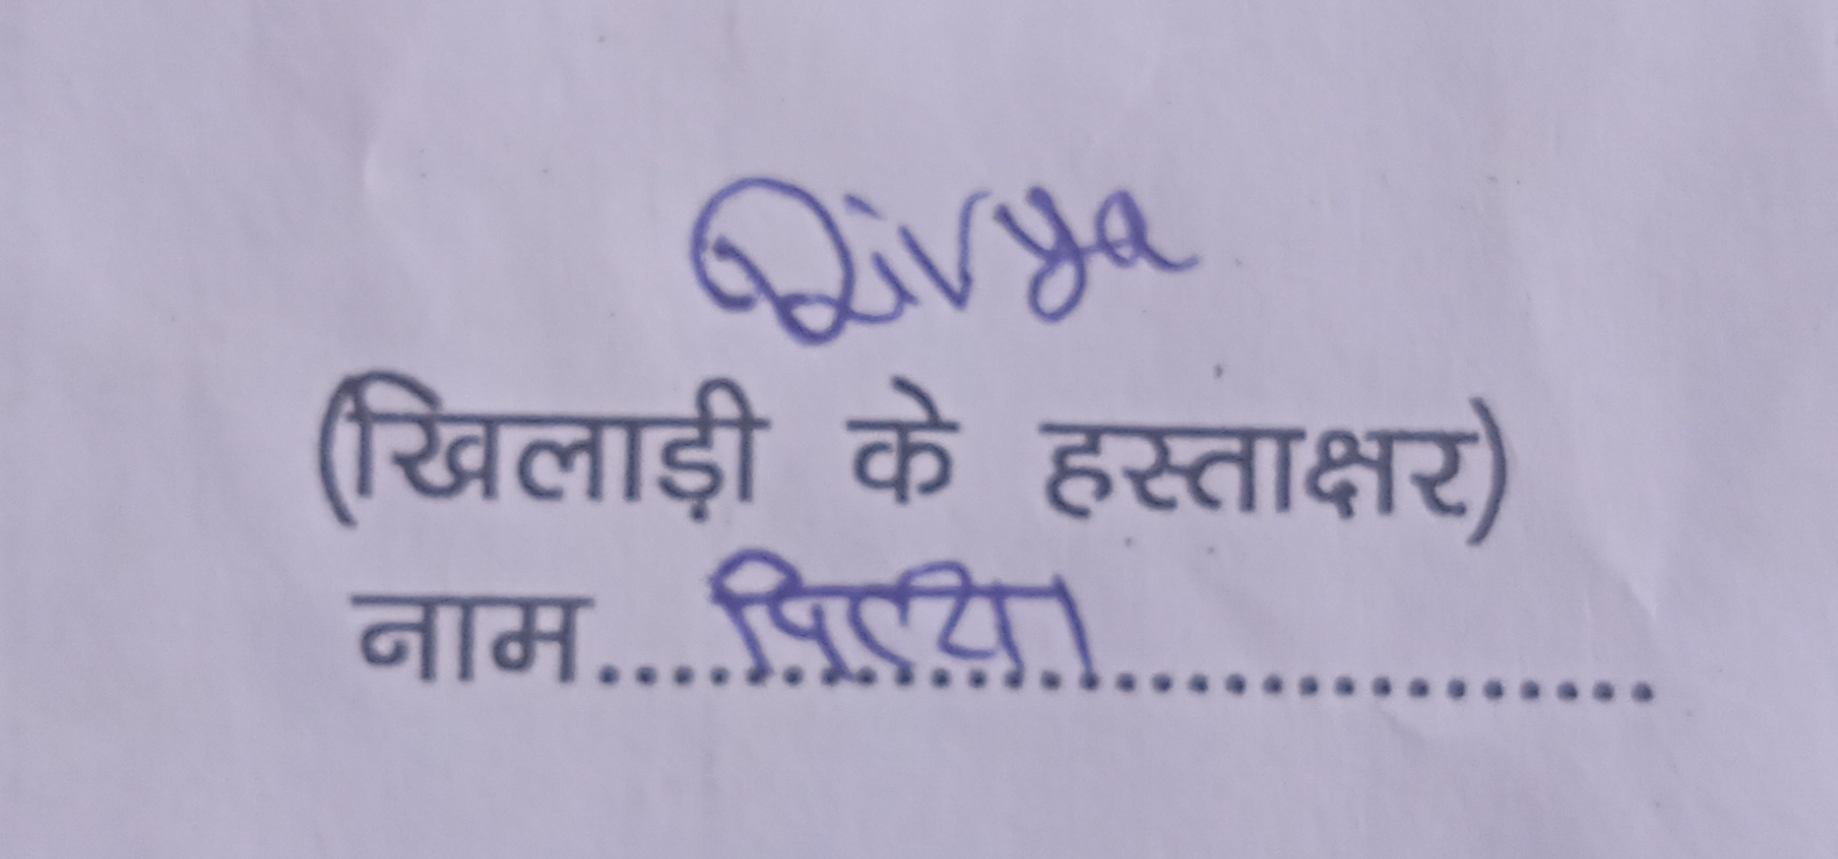 Divya
(खिलाड़ी के हस्ताक्षर)
नाम....................